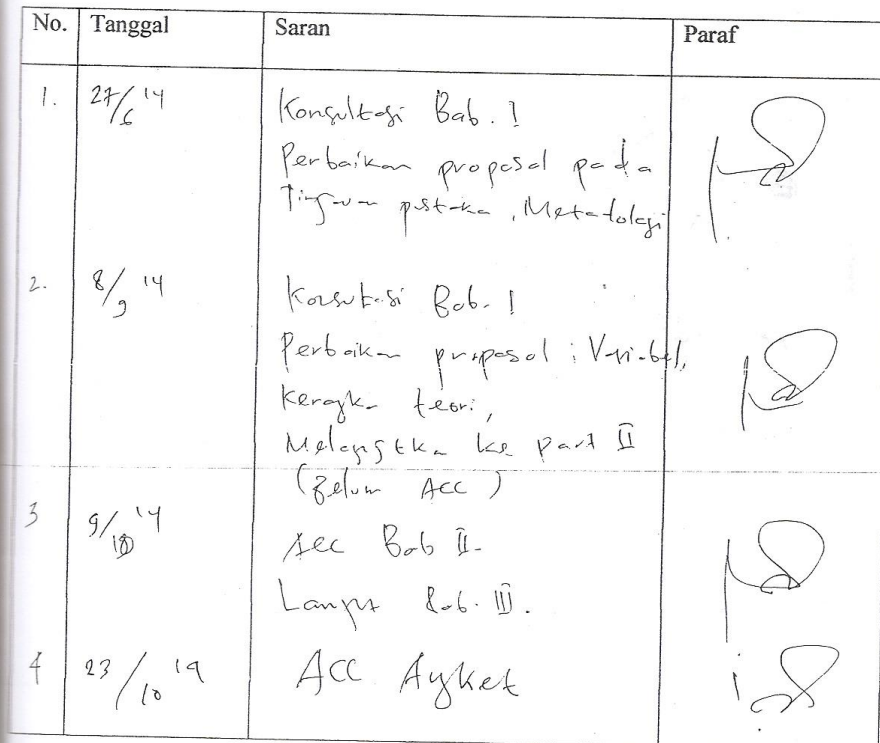 No. Tanggal Saran Paraf
1. 27/6 '14 Konsultasi Bab. I
Perbaikan proposal pada
Tinjauan pustaka, Metodologi
2. 8/9 '14 Konsultasi Bab. I
Perbaikan proposal : Variabel,
Kerangka teori,
Melanjutkan ke part II
(Belum ACC)
3 9/10 '14 Acc Bab II.
Lanjut Bab. III.
4 23/10 '14 ACC Angket